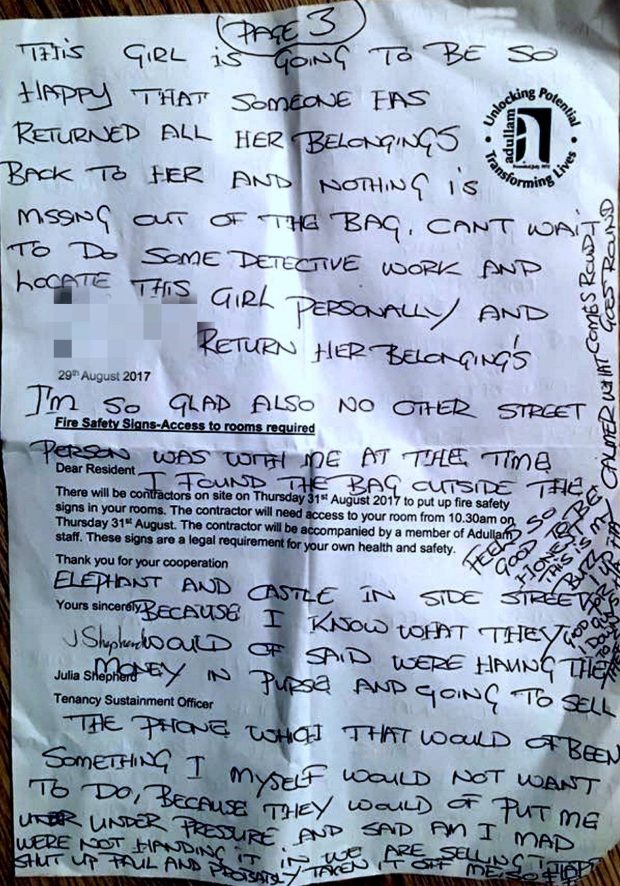 PAGE 3
THIS GIRL IS GOING TO BE SO
HAPPY THAT SOMEONE HAS
RETURNED ALL HER BELONGINGS
BACK TO HER AND NOTHING IS
MISSING OUT OF THE BAG. CANT WAIT
TO DO SOME DETECTIVE WORK AND
LOCATE THIS GIRL PERSONALLY AND
RETURN HER BELONGING'S
Unlocking Potential
adullam
Transforming Lives
29th August 2017
I'M SO GLAD ALSO NO OTHER STREET
Fire Safety Signs-Access to rooms required
PERSON WAS WITH ME AT THE TIME
Dear Resident
I FOUND THE BAG OUTSIDE THE
There will be contractors on site on Thursday 31st August 2017 to put up fire safety
signs in your rooms. The contractor will need access to your room from 10.30am on
Thursday 31st August. The contractor will be accompanied by a member of Adullam
staff. These signs are a legal requirement for your own health and safety.
Thank you for your cooperation
ELEPHANT AND CASTLE IN SIDE STREET
Yours sincerely
BECAUSE I KNOW WHAT THEY
J Shepherd
WOULD OF SAID WERE HAVING THE
Julia Shepherd
MONEY IN PURSE AND GOING TO SELL
Tenancy Sustainment Officer
THE PHONE WHICH THAT WOULD OF BEEN
SOMETHING I MYSELF WOULD NOT WANT
TO DO, BECAUSE THEY WOULD OF PUT ME
UNDER UNDER PRESSURE AND SAID AM I MAD
WERE NOT HANDING IT IN WE ARE SELLING IT
SHUT UP PAUL AND PROBABLY TAKEN IT OFF ME SO
CALMER WHAT COMES ROUND
GOES ROUND
FEELS SO
GOOD TO BE
HONEST
THIS IS MY